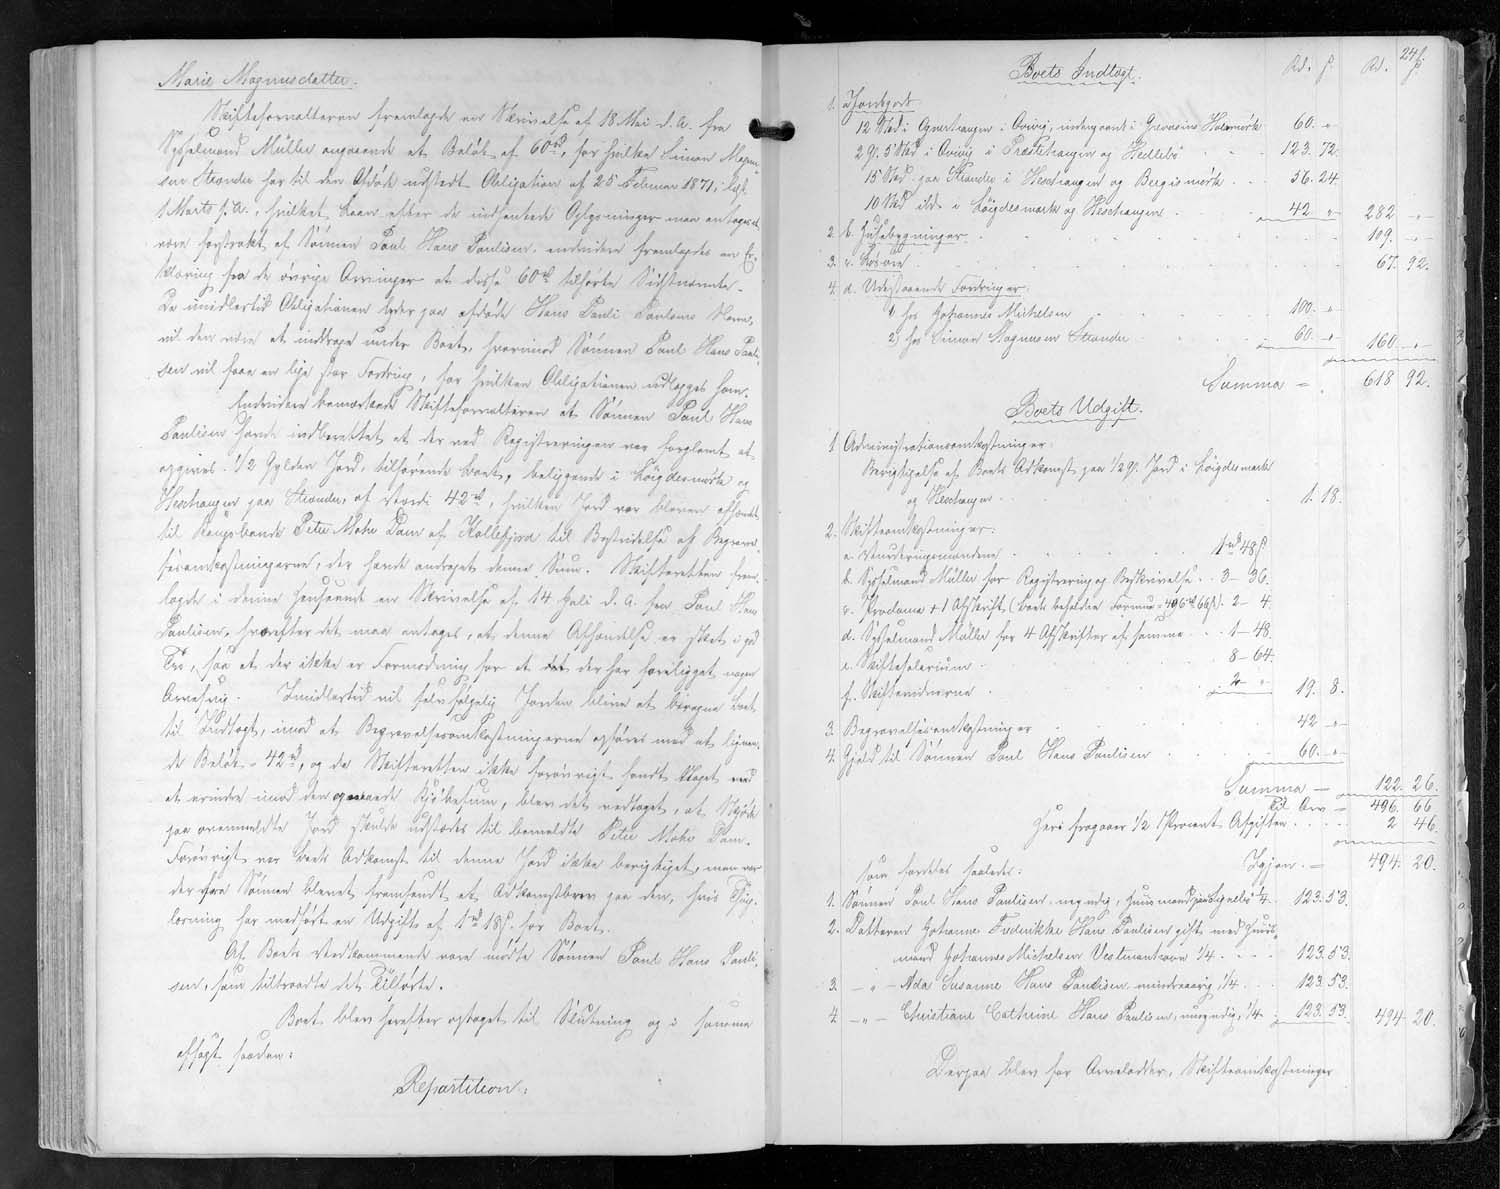 Marie Magnusdatter.
Skifteforvalteren fremlagde en Skrivelse af 18 Mai d. A. fra
Sysselmand Müller angaaende et Beløb af 60 rd, for hvilke Simon Magnus-
sen Strender har til den Afdøde udstedt Obligation af 25 Februar 1871,
1 Marts s. A., hvilket Laan efter de indhentede Oplysninger maa antages at
være forstrakt af Sønnen Poul Hans Poulsen, endvidere fremlagdes en Er-
klæring fra de øvrige Arvinger at disse 60 rd tilhørte Sidstnævnte.
Da imidlertid Obligationen lyder paa afdøde Hans Pauli Poulsens Navn,
vil den være at indtage under Boet, hvorimod Sønnen Poul Hans Pauli-
sen vil faae en lige stor Fordring, for hvilken Obligationen udlægges ham.
Endvidere bemærkede Skifteforvalteren at Sønnen Poul Hans
Paulisen havde indberettet at der ved Registreringen var forglemt at
opgives 1/2 Gylden Jord, tilhørende Boet, beliggende i Løigdesmørk og
Heschangur paa Strender, af Værdi 42 rd, hvilken Jord var bleven afhændet
til Kongsbonde Peter Mohr Dam af Kollefjord til Bestridelse af Begravel-
sesomkostningerne, der havde andraget denne Sum. Skifteretten frem-
lagde i denne Henseende en Skrivelse af 14 Juli d. A. fra Poul Hans
Paulisen, hvorefter det maa antages, at denne Afhændelse er skeet i god
Tro, saa at der ikke er Formodning for at der har foreligget nogen
Arvesvig. Imidlertid vil selvfølgelig Jorden blive at beregne Boet
til Indtægt, imod at Begravelsesomkostningerne opføres med et lignen-
de Beløb - 42 rd, og da Skifteretten ikke forøvrigt fandt Noget ved
at erindre imod den Kjøbesum, blev det vedtaget, at Skjøde
paa ovenmeldte Jord skulde udstædes til bemeldte Peter Mohr Dam.
Forøvrigt var Boets Adkomst til denne Jord ikke berigtiget, men var
der fra Sønnen blevet fremsendt et Adkomstbrev paa den, hvis Thing-
læsning har medført en Udgift af 1 rd 18 s. for Boet.
Af Boets Vedkommende var mødte Sønnen Poul Hans Pauli-
sen, som tiltraadte det Tilførte.
Boet blev herefter optaget til Slutning og i samme
afsagt saadan:
Repartition:
24 s
Boets Indtægt. Rd. s. Rd. s.
1. a Jordegods
12 Skd i Ognerhaugen i Øvivig, Holsmørk 60. -"-
2 gl. 5 Skd i Øvivig i Præstehaugen og Hedlebø . . 123. 72.
15 Skd paa Strender i Heschaugen og Bergismørk . . . 56. 24.
10 Skd ibd. i Løigdesmørk og Heschaugen . . . 42 " 282 -"-
2. b. Huusebygninger . . . 109. -"-
3. c. Løsøre . . . 67. 92.
4. d. Udestaaende Fordringer:
1) hos Johannes Michelsen . . . 100. -"-
2) hos Simon Magnussen Strender . . . 60. -"- 160 -"-
Summa = 618 92.
Boets Udgift.
1 Administrationsomkostninger:
Berigtigelse af Boets Adkomst paa 1/2 gl. Jord i Løigdesmørk
og Heschaugen . . . 1. 18.
2. Skifteomkostninger:
a. Vurderingsmændene . . . 1 rd 48 s
b. Sysselmand Müller for Registrering og Beskrivelse . . 3 - 36.
c. Proclama + 1 Afskrift, (Boets beholdne Formue = 496 rd 66 s) . 2 - 4.
d. Sysselmand Müller for 4 Afskrifter af samme . . . 1 - 48.
e. Skiftesalarium . . . 8 - 64.
f. Skiftevidnerne . . . 2 - " 19. 8.
3. Begravelsesomkostninger . . . 42 -"-
4. Gjæld til Sønnen Poul Hans Paulisen . . . 60. -"-
Summa = 122. 26.
til Arv = 496. 66
Heraf fragaaer 1/2 Procent Afgiften . . . 2 46.
Igjen = 494. 20.
som fordeles saaledes:
1. Sønnen Poul Hans Paulisen, myndig, Huusmand paa Signebø 1/4. 123. 53.
2. Datteren Johanne Frederikke Hans Paulisen gift med Huus-
mand Johannes Michelsen Vestmanhavn 1/4 . . . 123. 53.
3. -"- Ada Susanne Hans Paulisen, mindreaarig, 1/4 . . . 123. 53
4. -"- Christiane Cathrine Hans Paulisen, umyndig, 1/4 . 123. 53. 494 20.
Derpaa blev for Arvelodder, Skifteomkostninger